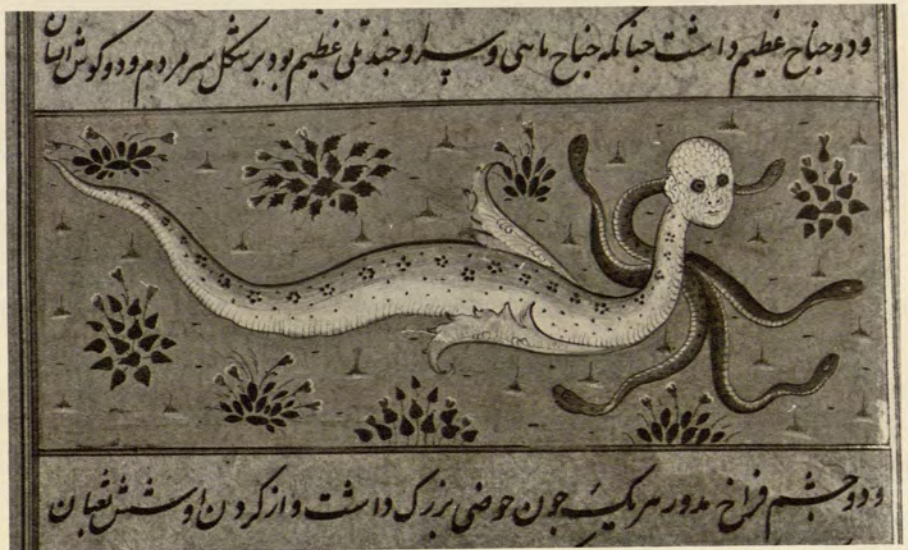 ودو جناح عظیم داشت جنانکه جناح ماهی وسر او جند تلی عظیم بود بر شکل سر مردم ودو کوش انسان
ودو جشم فراخ مدور هر یک جون حوضی بزرک داشت واز کردن او شش ثعبان